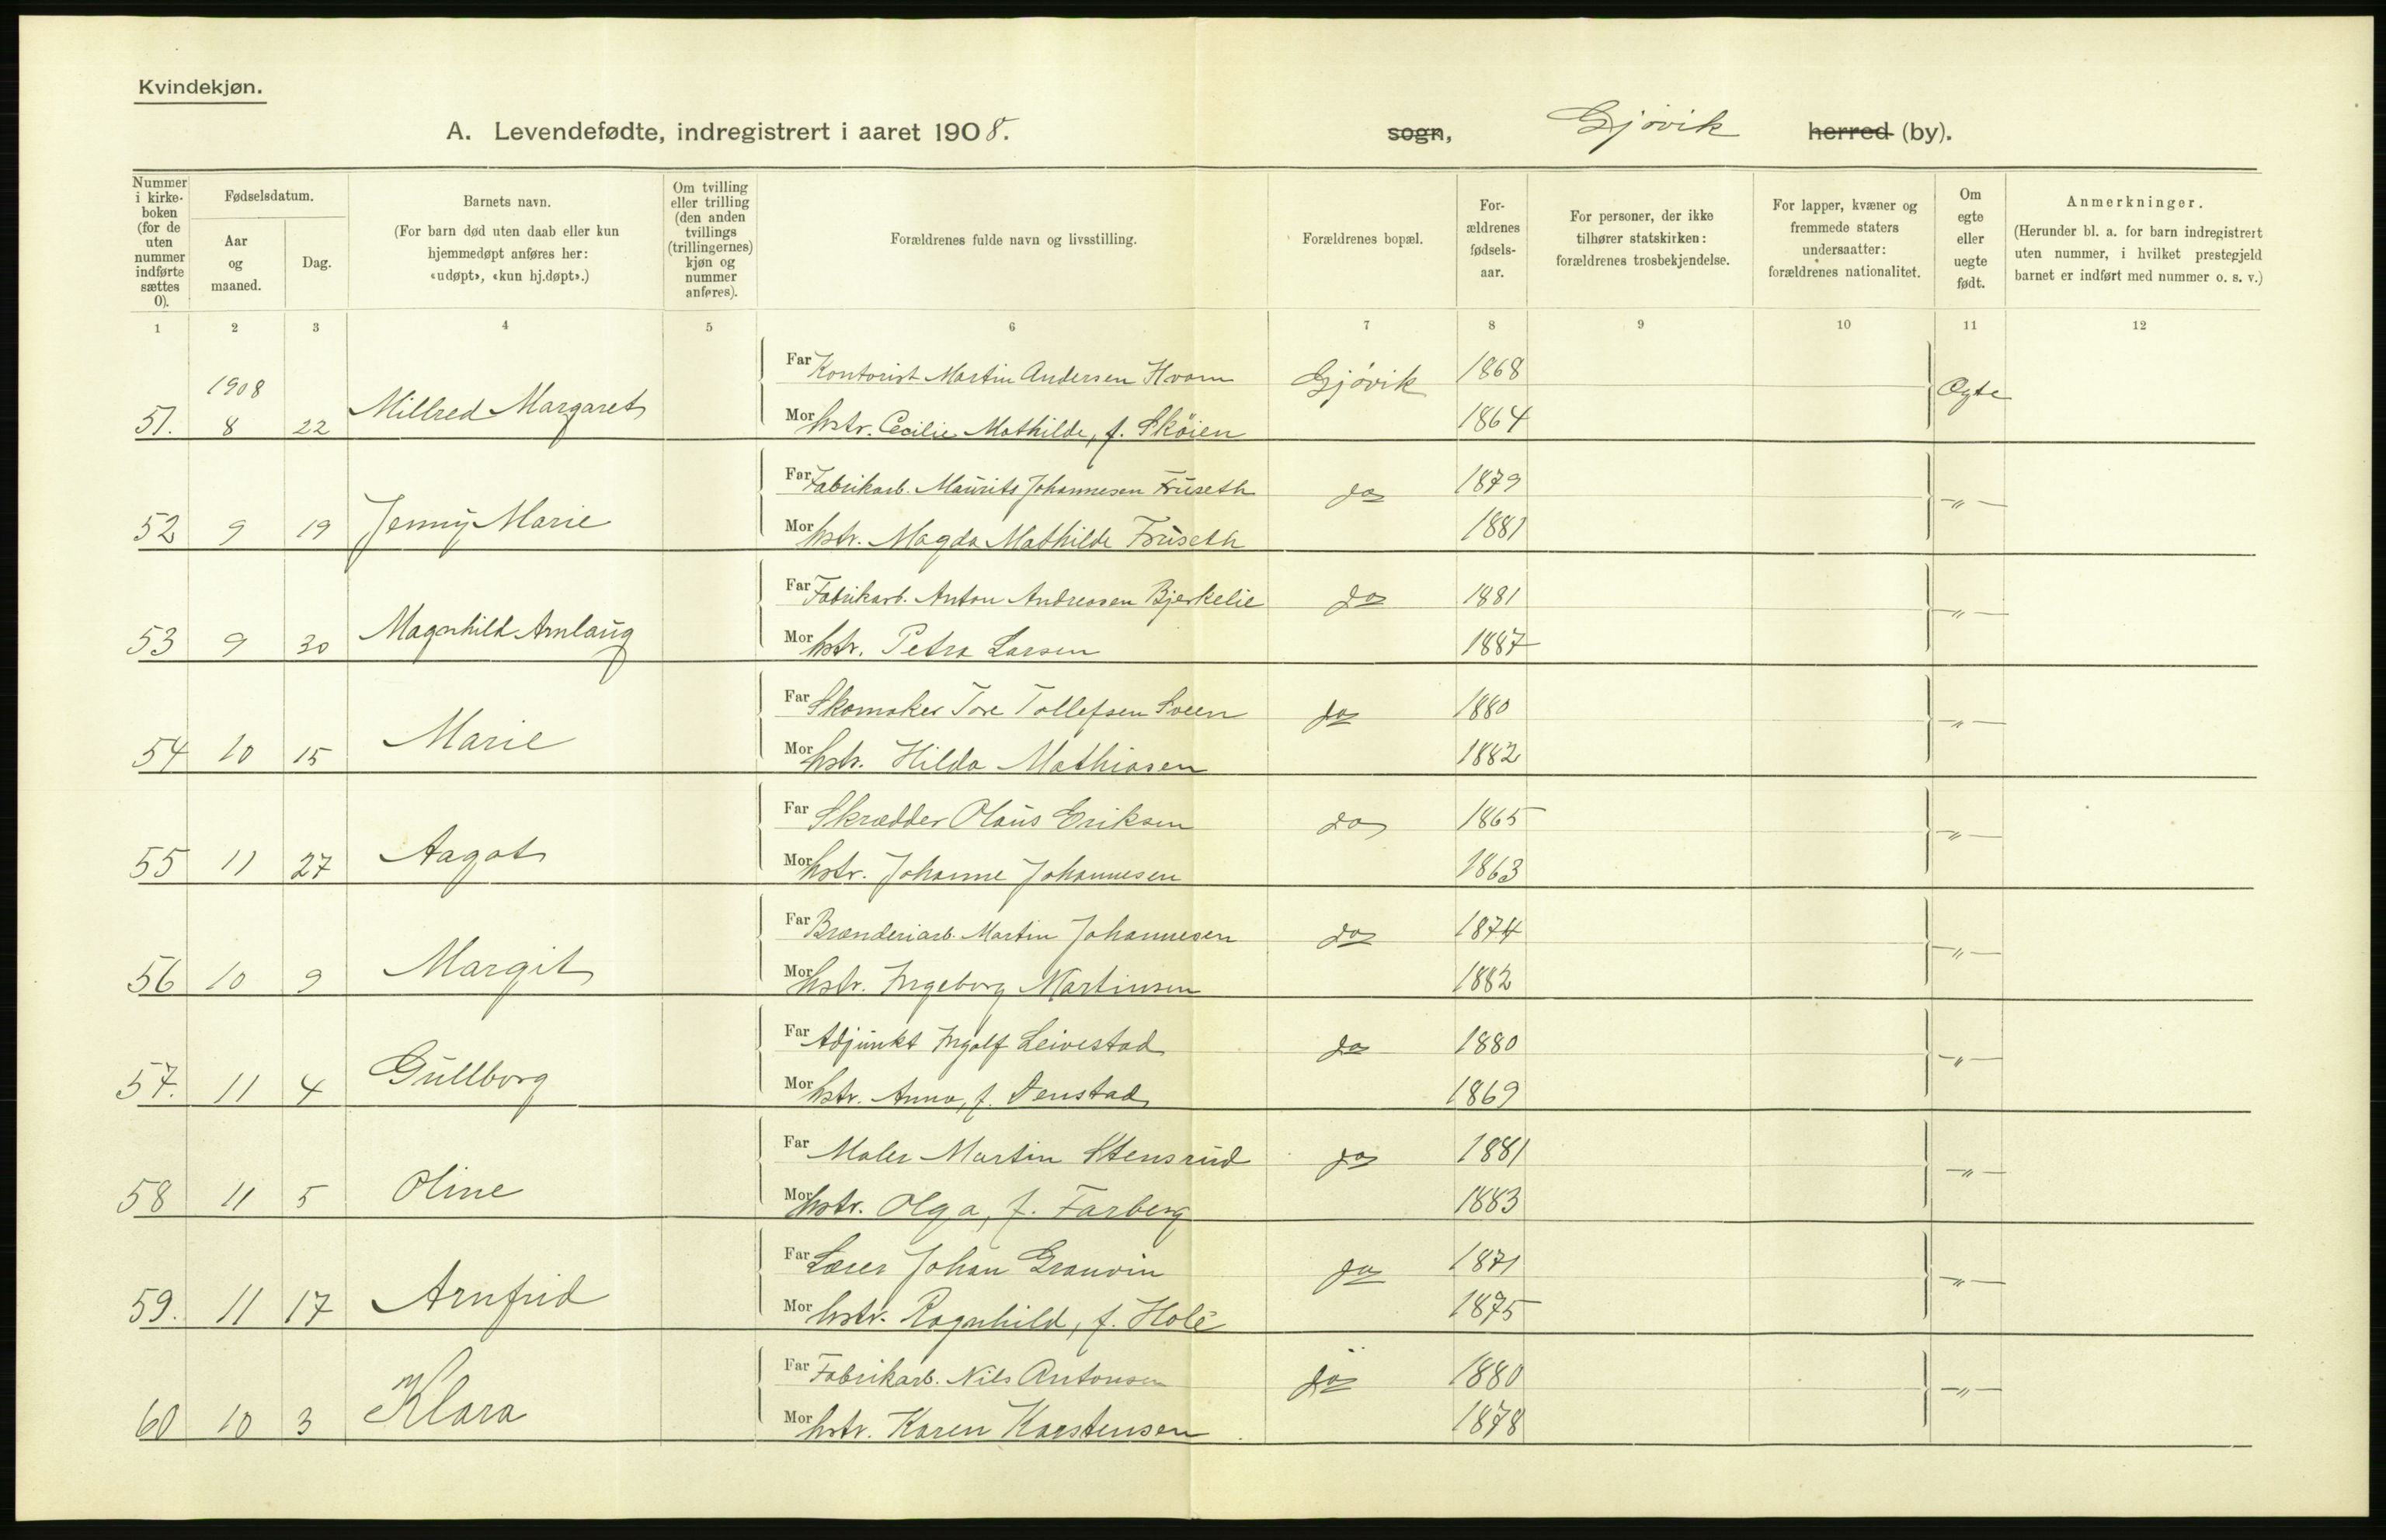 Kvindekjøn.
A. Levendefødte, indregistrert i aaret 1908. sogn, Gjøvik herred (by).
Nummer i kirkeboken (for de uten nummer indførte sættes 0).
Fødselsdatum.
Aar og maaned.
Dag.
Barnets navn.
(For barn død uten daab eller kun hjemmedøpt anføres her: «udøpt», «kun hj.døpt».)
Om tvilling eller trilling (den anden tvillings (trillingernes) kjøn og nummer anføres).
Forældrenes fulde navn og livsstilling.
Forældrenes bopæl.
For-ældrenes fødsels-aar.
For personer, der ikke tilhører statskirken: forældrenes trosbekjendelse.
For lapper, kvæner og fremmede staters undersaatter: forældrenes nationalitet.
Om egte eller uegte født.
Anmerkninger.
(Herunder bl. a. for barn indregistrert uten nummer, i hvilket prestegjeld barnet er indført med nummer o. s. v.)
1 2 3 4 5 6 7 8 9 10 11 12
1908
Far Kontorist Martin Andersen Hvam Gjøvik 1868 Ægte
51. 8 22 Millred Margaret Mor hstr. Cecilie Mathilde, f. Skøien 1864
Far Fabrikarb. Maurits Johannesen Fruseth do 1879 -"-
52 9 19 Jenny Marie Mor hstr. Magda Mathilde Fruseth 1881
Far Fabrikarb. Anton Andreasen Bjerkelie do 1881 -"-
53 9 30 Magnhild Arnlaug Mor hstr. Petra Larsen 1887
Far Skomaker Tore Tollefsen Sveen do 1880 -"-
54 10 15 Marie Mor hstr. Hilda Mathiasen 1882
Far Skrædder Olaus Eriksen do 1865 -"-
55 11 27 Aagot Mor hstr. Johanne Johannesen 1863
Far Brænderiarb. Martin Johannesen do 1874 -"-
56 10 9 Margit Mor hstr. Ingeborg Martinsen 1882
Far Adjunkt Ingolf Leivestad do 1880 -"-
57. 11 4 Gullborg Mor hstr. Anna, f. Denstad 1869
Far Maler Martin Stensrud do 1881 -"-
58 11 5 Oline Mor hstr. Olga, f. Farberg 1883
Far Lærer Johan Granvin do 1871 -"-
59. 11 17 Arnfrid Mor hstr. Ragnhild, f. Hole 1875
Far Fabrikarb. Nils Antonsen do 1880 -"-
60 10 3 Klara Mor hstr. Karen Karstensen 1878